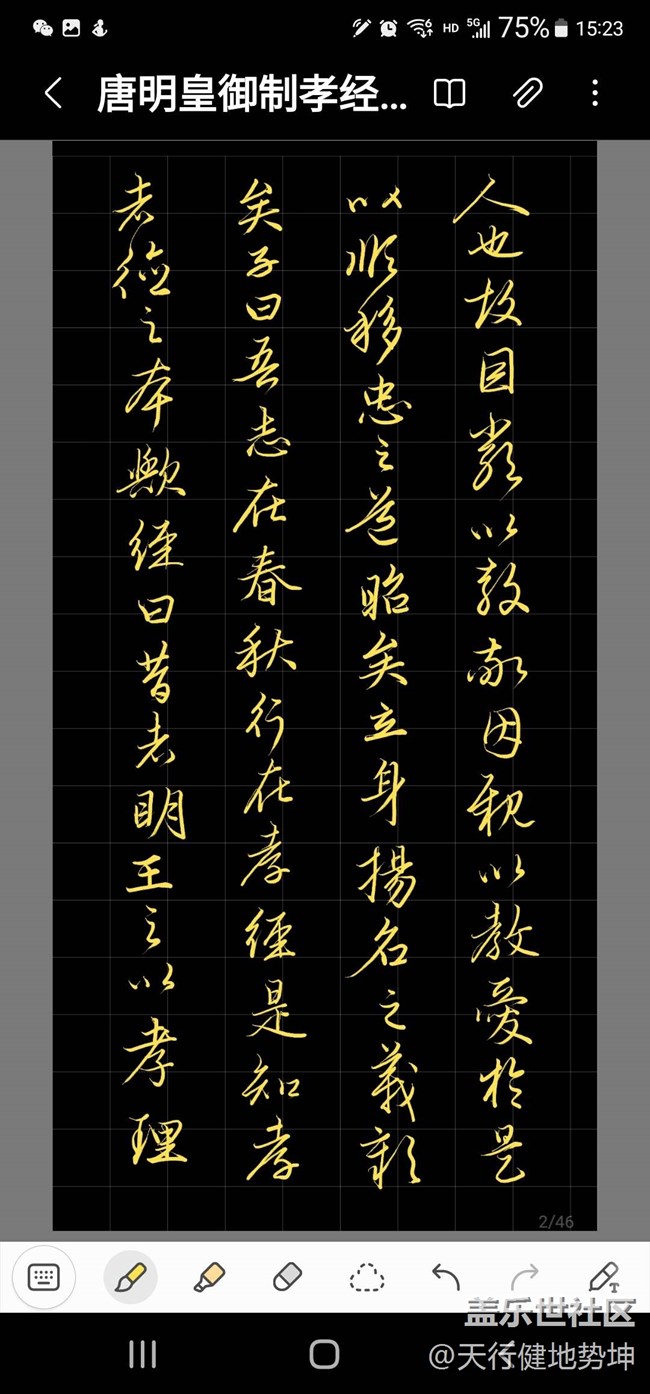 HD 5G 75% 15:23
唐明皇御制孝经...
人也故因嚴以教敬因親以教愛於是
以順移忠之道昭矣立身揚名之義彰
矣子曰吾志在春秋行在孝經是知孝
者德之本歟經曰昔者明王之以孝理
2/46
盖乐世社区
@天行健地势坤